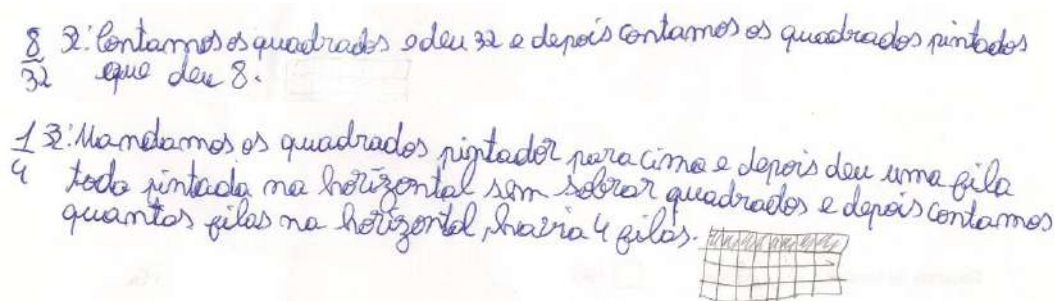 8/32 R: Contamos os quadrados e deu 32 e depois contamos os quadrados pintados
que deu 8.
1/4 R: Mandamos os quadrados pintador para cima e depois deu uma fila
toda pintada na horizontal sem sobrar quadrados e depois contamos
quantas filas na horizontal, havia 4 filas.